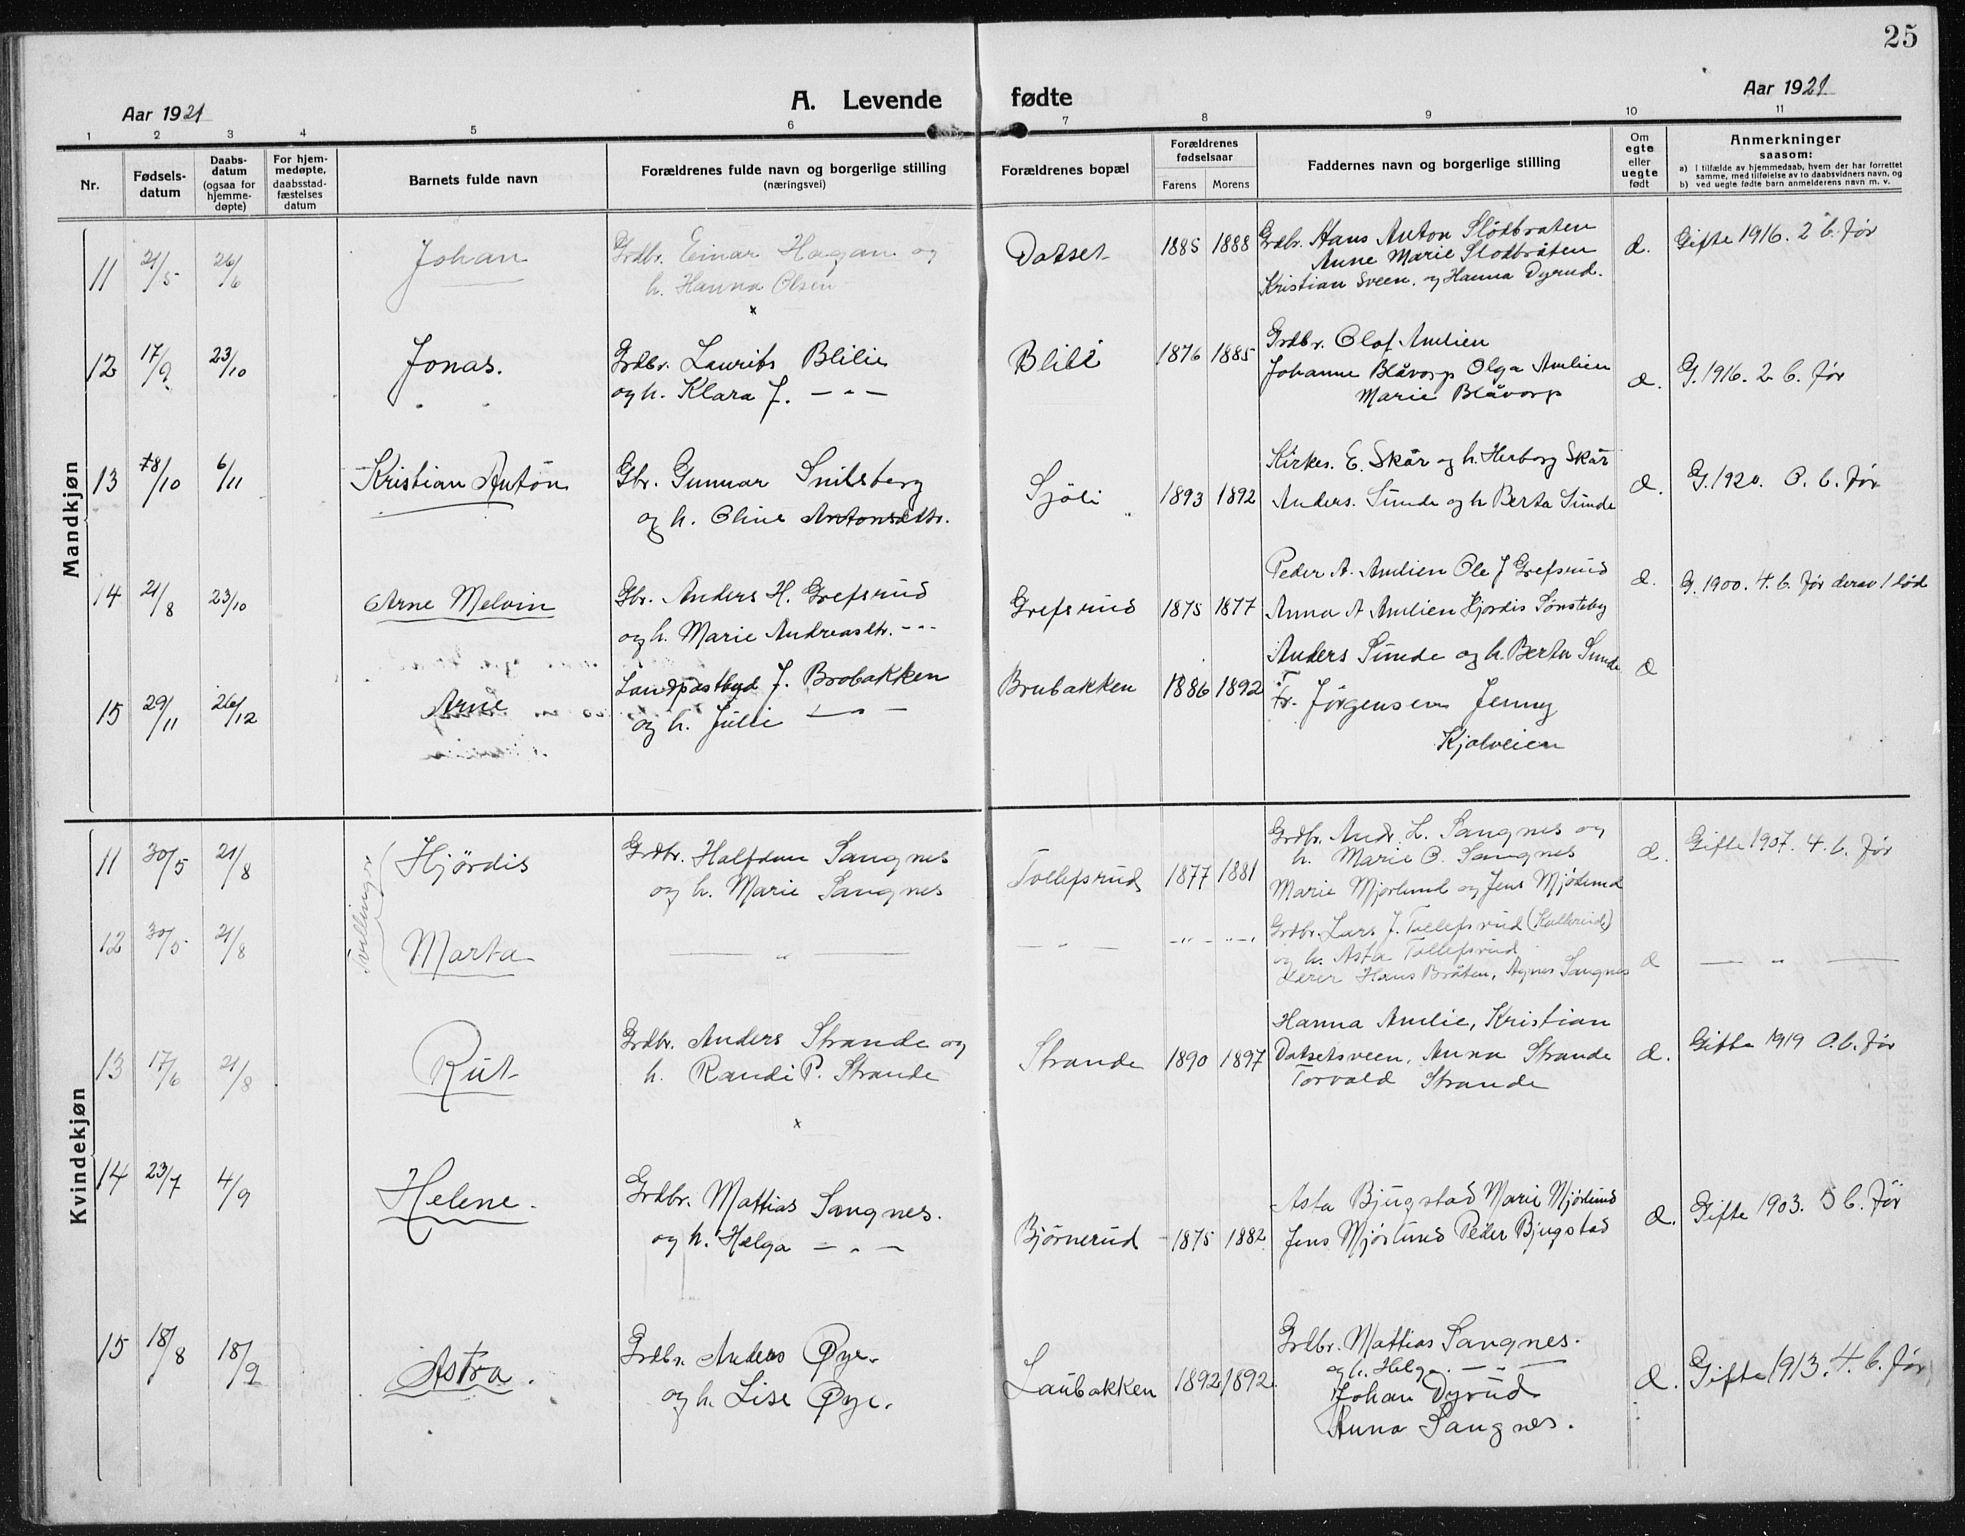 25
Aar 1921
A. Levende fødte
Aar 1921
1 2 3 4 5 6 7 8 9 10 11
Nr.
Fødsels-
datum
Daabs-
datum
(ogsaa for
hjemme-
døpte)
For hjem-
medøpte,
daabsstad-
fæstelses
datum
Barnets fulde navn
Forældrenes fulde navn og borgerlige stilling
(næringsvei)
Forældrenes bopæl
Forældrenes
fødselsaar
Farens Morens
Faddernes navn og borgerlige stilling
Om
egte
eller
uegte
født
Anmerkninger
saasom:
a) I tilfælde av hjemmedaab, hvem der har forrettet
samme, med tilføielse av to daabsvidners navn, og
b) ved uegte fødte barn anmelderens navn m. v.
Mandkjøn
11 21/5 26/6 Johan Grdbr. Einar Hagan og
h. Hanna Olsen
Dotset 1885 1888 Grdbr. Hans Anton Slådbråten
Anne Marie Slådbråten
Kristian Sveen, og Hanna Dyrud.
d. Gifte 1916. 2 b. før
12 17/9 23/10 Jonas. Grdbr. Laurits Blilie
og h. Klara J. — " —
Blili 1876 1885 Grdbr. Olaf Amlien
Johanne Blåvorp Olga Amlien
Marie Blåvorp
d. G. 1916. 2 b. før
13 8/10 6/11 Kristian Anton Gbr. Gunnar Snilsberg
og h. Oline Antonsdtr.
Sjøli 1893 1892 Kirkes. E. Skår og h. Herborg Skår
Anders. Sunde og h Berta Sunde
d. G. 1920. O. b. før
14 21/8 23/10 Arne Melvin Gbr. Anders H. Grefsrud
og h. Marie Andreasdtr. - " -
Grefsrud 1875 1877 Peder A. Amlien Ole J Grefsrud
Anna A Amlien Hjordis Sønsteby
d. G. 1900. 4. b. før derav 1 død
15 29/11 26/12 Arne Landpostbud J. Brobakken
og h. Julie — " —
Brubakken 1886 1892 Anders Sunde og h. Berta Sunde
Fr. Jørgensen Jenny
Kjølveien
d
Kvindekjøn
Tvillinger
11 30/5 21/8 Hjørdis Grdbr. Halfdan Sangnes
og h. Marie Sangnes
Tollefsrud 1877 1881 Grdbr. Andr. L. Sangnes og
h. Marie O. Sangnes
Marie Mjørlund og Jens Mjørlund
d. Gifte 1907. 4. b. før
12 30/5 21/8 Marta — " —
— " — - " - - " - Grdbr. Lars J. Tollefsrud
og h. Asta Tollefsrud
Lærer Hans Bråten, Agnes Sangnes
d — " —
13 17/6 21/8 Rut Grdbr. Anders Strande og
h. Randi P. Strande
Strande 1890 1897 Hanna Amlie, Kristian
Dotsetsveen, Anna Strande
Torvald Strande
d. Gifte 1919 O. b. før
14 23/7 4/9 Helene. Grdbr. Mattias Sangnes.
og h. Helga — " —
Bjørnerud 1875 1882 Asta Bjugstad Marie Mjørlund
Jens Mjørlund Peder Bjugstad
d. Gifte 1903. 5 b. før
15 18/8 18/9 Astra. Grdbr. Anders Øye.
og h. Lise Øye.
Laubakken 1892 1892 Grdbr. Mattias Sangnes.
og h. Helga. — " —
Johan Dyrud
Anna Sangnes.
d. Gifte 1913. 4. b. før